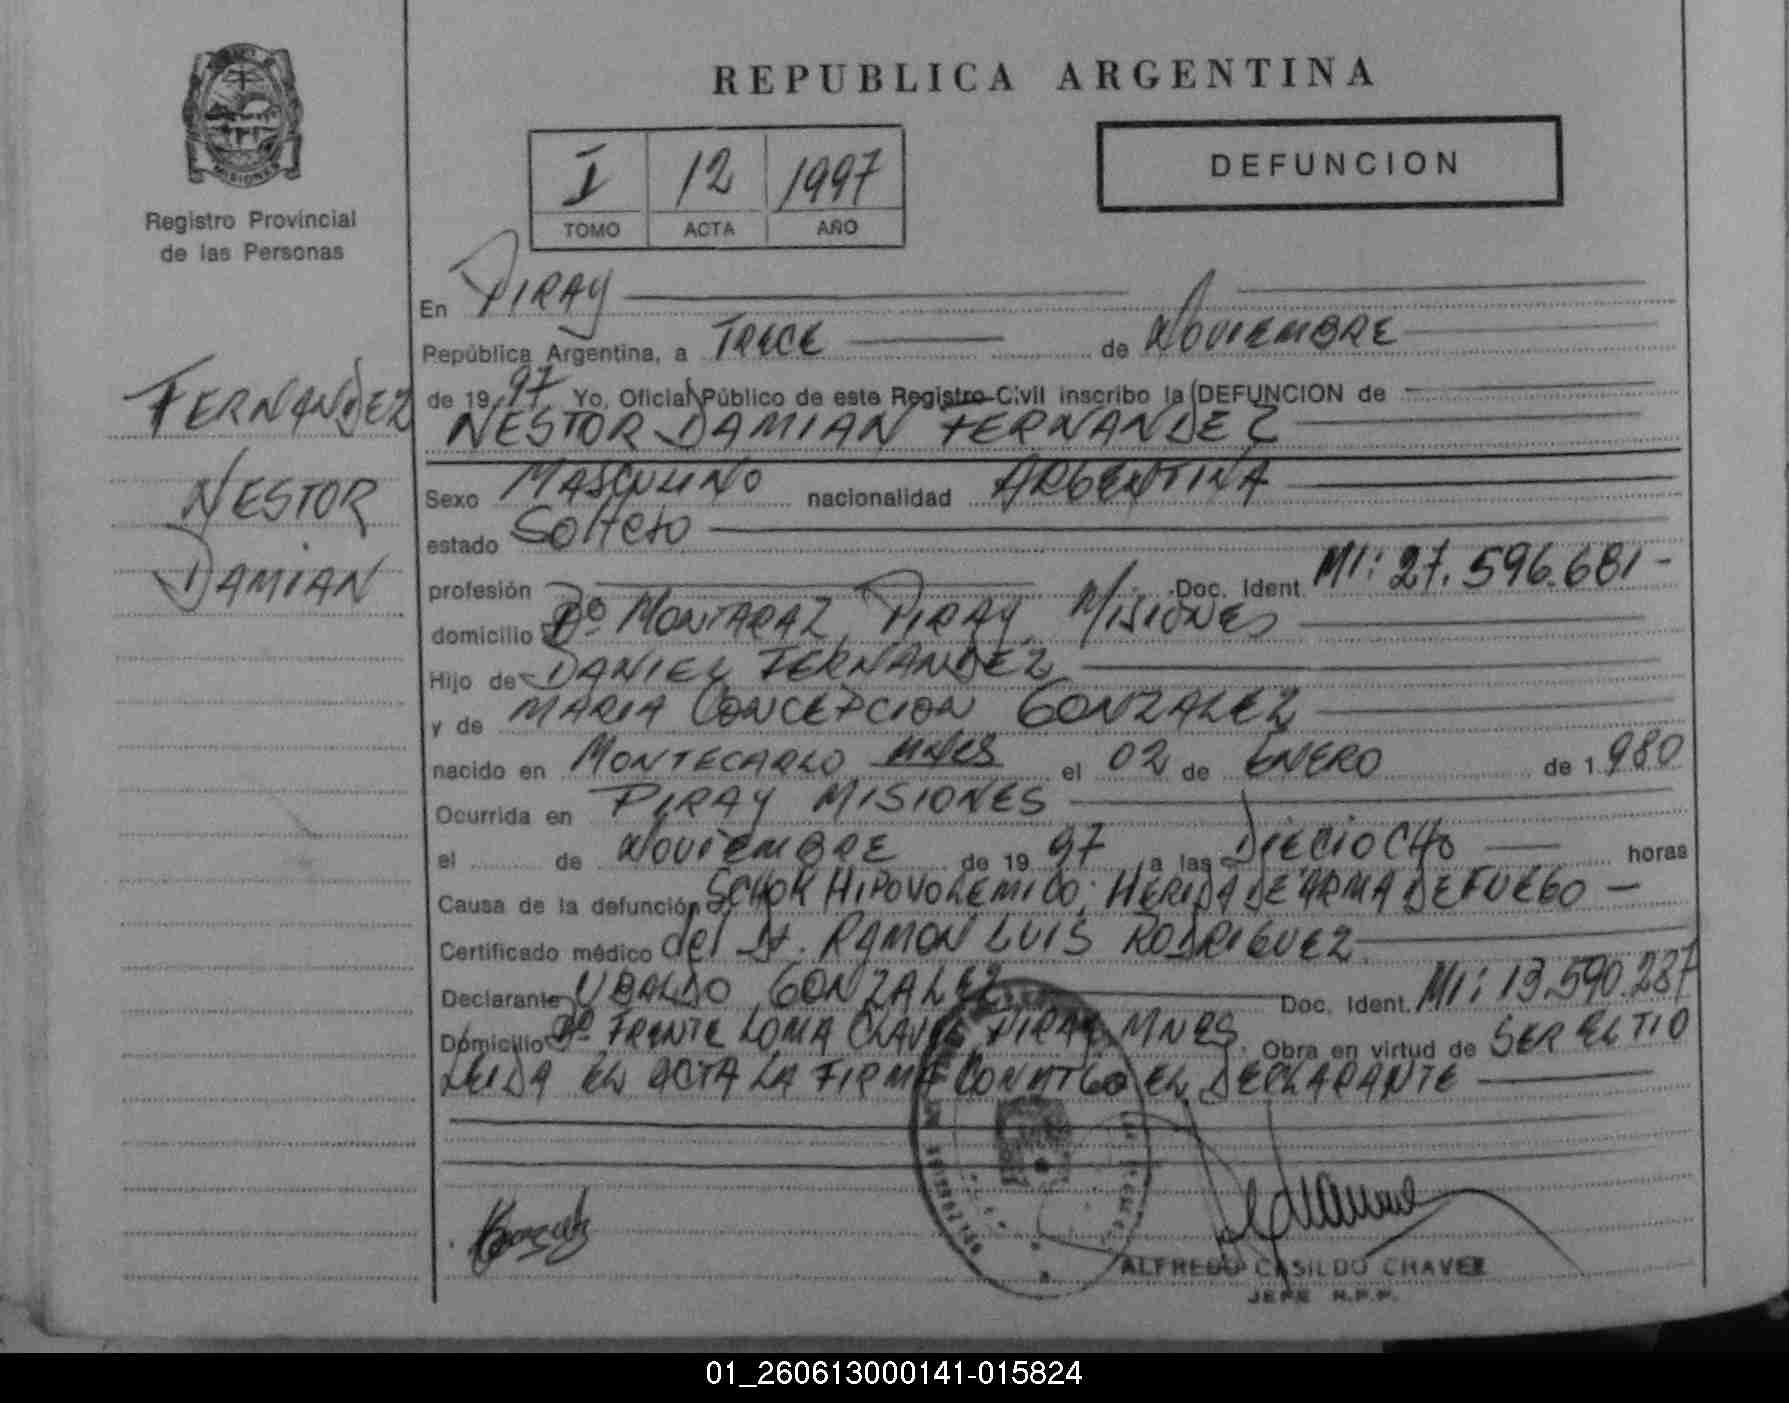 REPUBLICA ARGENTINA
MISIONES
Registro Provincial
de las Personas
I 12 1997
TOMO ACTA AÑO
DEFUNCION
FERNANDEZ
NESTOR
DAMIAN
En PIRAY
República Argentina, a TRECE de NOVIEMBRE
de 19 97 Yo, Oficial Público de este Registro Civil inscribo la DEFUNCION de
NESTOR DAMIAN FERNANDEZ
Sexo MASCULINO nacionalidad ARGENTINA
estado Soltero
profesión Doc. Ident. MI: 27.596.681-
domicilio Bº MONTARAZ, PIRAY, MISIONES
Hijo de DANIEL FERNANDEZ
y de MARIA CONCEPCION GONZALEZ
nacido en MONTECARLO MNES el 02 de ENERO de 1.980
Ocurrida en PIRAY MISIONES
el de NOVIEMBRE de 19 97 a las DIECIOCHO horas
Causa de la defunción SCHOK HIPOVOLEMICO; HERIDA DE ARMA DE FUEGO -
Certificado médico del Dr. RAMON LUIS RODRIGUEZ
Declarante UBALDO GONZALEZ Doc. Ident. MI: 13.590.287
Domicilio Bº FRENTE LOMA PIRAY MNES. Obra en virtud de SER EL TIO
LEIDA EL ACTA LA FIRMA CONMIGO EL DECLARANTE
ALFREDO CASILDO CHAVEZ
JEFE R.P.P.
01_260613000141-015824